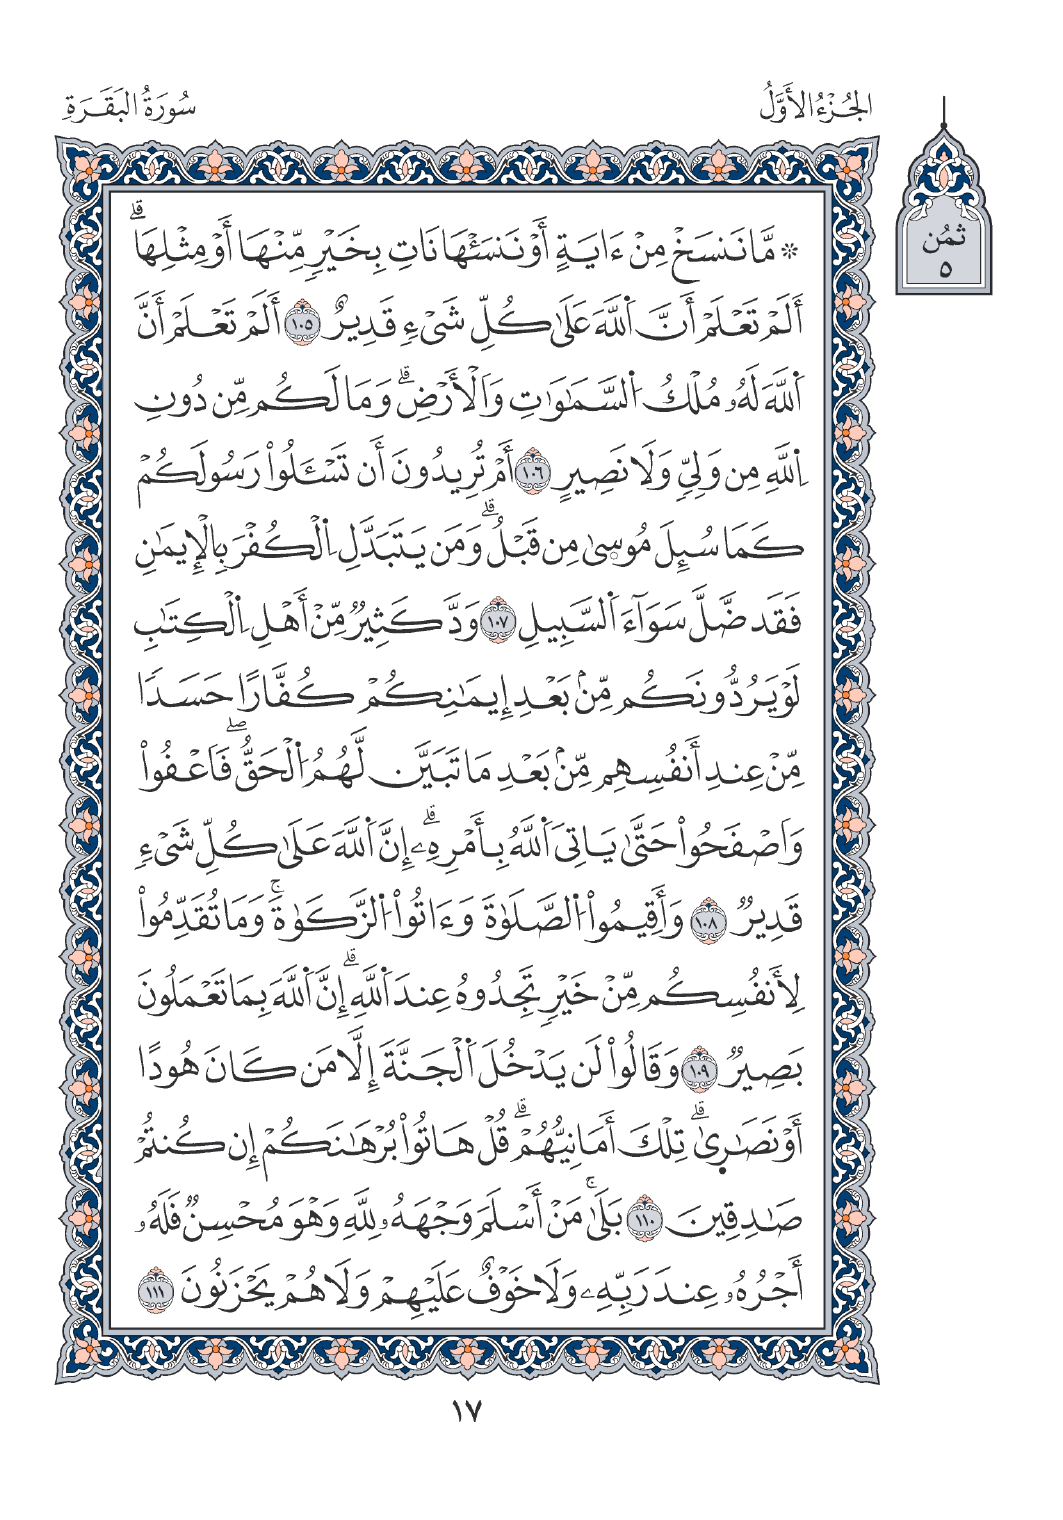 الجُزْءُ الأَوَّلُ
سُورَةُ البَقَرَةِ
ثمُن
٥
۞ مَّا نَنسَخْ مِنْ ءَايَةٍ أَوْ نَنسَـْٔهَا نَاتِ بِخَيْرٍ مِّنْهَا أَوْ مِثْلِهَاۗ
أَلَمْ تَعْلَمْ أَنَّ اَ۬للَّهَ عَلَىٰ كُلِّ شَيْءٍ قَدِيرٌ ١٠٥ أَلَمْ تَعْلَمْ أَنَّ
اَ۬للَّهَ لَهُۥ مُلْكُ اُ۬لسَّمَٰوَٰتِ وَالْأَرْضِۗ وَمَا لَكُم مِّن دُونِ
اِ۬للَّهِ مِن وَلِيٍّ وَلَا نَصِيرٍ ١٠٦ أَمْ تُرِيدُونَ أَن تَسْـَٔلُواْ رَسُولَكُمْ
كَمَا سُئِلَ مُوسۭىٰ مِن قَبْلُۗ وَمَن يَتَبَدَّلِ اِ۬لْكُفْرَ بِالْإِيمَٰنِ
فَقَد ضَّلَّ سَوَآءَ اَ۬لسَّبِيلِ ١٠٧ وَدَّ كَثِيرٌ مِّنْ أَهْلِ اِ۬لْكِتَٰبِ
لَوْ يَرُدُّونَكُم مِّنۢ بَعْدِ إِيمَٰنِكُمْ كُفَّارًا حَسَدًا
مِّنْ عِندِ أَنفُسِهِم مِّنۢ بَعْدِ مَا تَبَيَّن لَّهُمُ اُ۬لْحَقُّۖ فَاعْفُواْ
وَاصْفَحُواْ حَتَّىٰ يَاتِيَ اَ۬للَّهُ بِأَمْرِهِۦۗ إِنَّ اَ۬للَّهَ عَلَىٰ كُلِّ شَيْءٍ
قَدِيرٌ ١٠٨ وَأَقِيمُواْ اُ۬لصَّلَوٰةَ وَءَاتُواْ اُ۬لزَّكَوٰةَۚ وَمَا تُقَدِّمُواْ
لِأَنفُسِكُم مِّنْ خَيْرٍ تَجِدُوهُ عِندَ اَ۬للَّهِۗ إِنَّ اَ۬للَّهَ بِمَا تَعْمَلُونَ
بَصِيرٌ ١٠٩ وَقَالُواْ لَن يَدْخُلَ اَ۬لْجَنَّةَ إِلَّا مَن كَانَ هُودًا
أَوْ نَصَٰرٜىٰۗ تِلْكَ أَمَانِيُّهُمْۗ قُلْ هَاتُواْ بُرْهَٰنَكُمْ إِن كُنتُمْ
صَٰدِقِينَ ١١٠ بَلَىٰۚ مَنْ أَسْلَمَ وَجْهَهُۥ لِلَّهِ وَهْوَ مُحْسِنٌ فَلَهُۥ
أَجْرُهُۥ عِندَ رَبِّهِۦ وَلَا خَوْفٌ عَلَيْهِمْ وَلَا هُمْ يَحْزَنُونَ ١١١
١٧